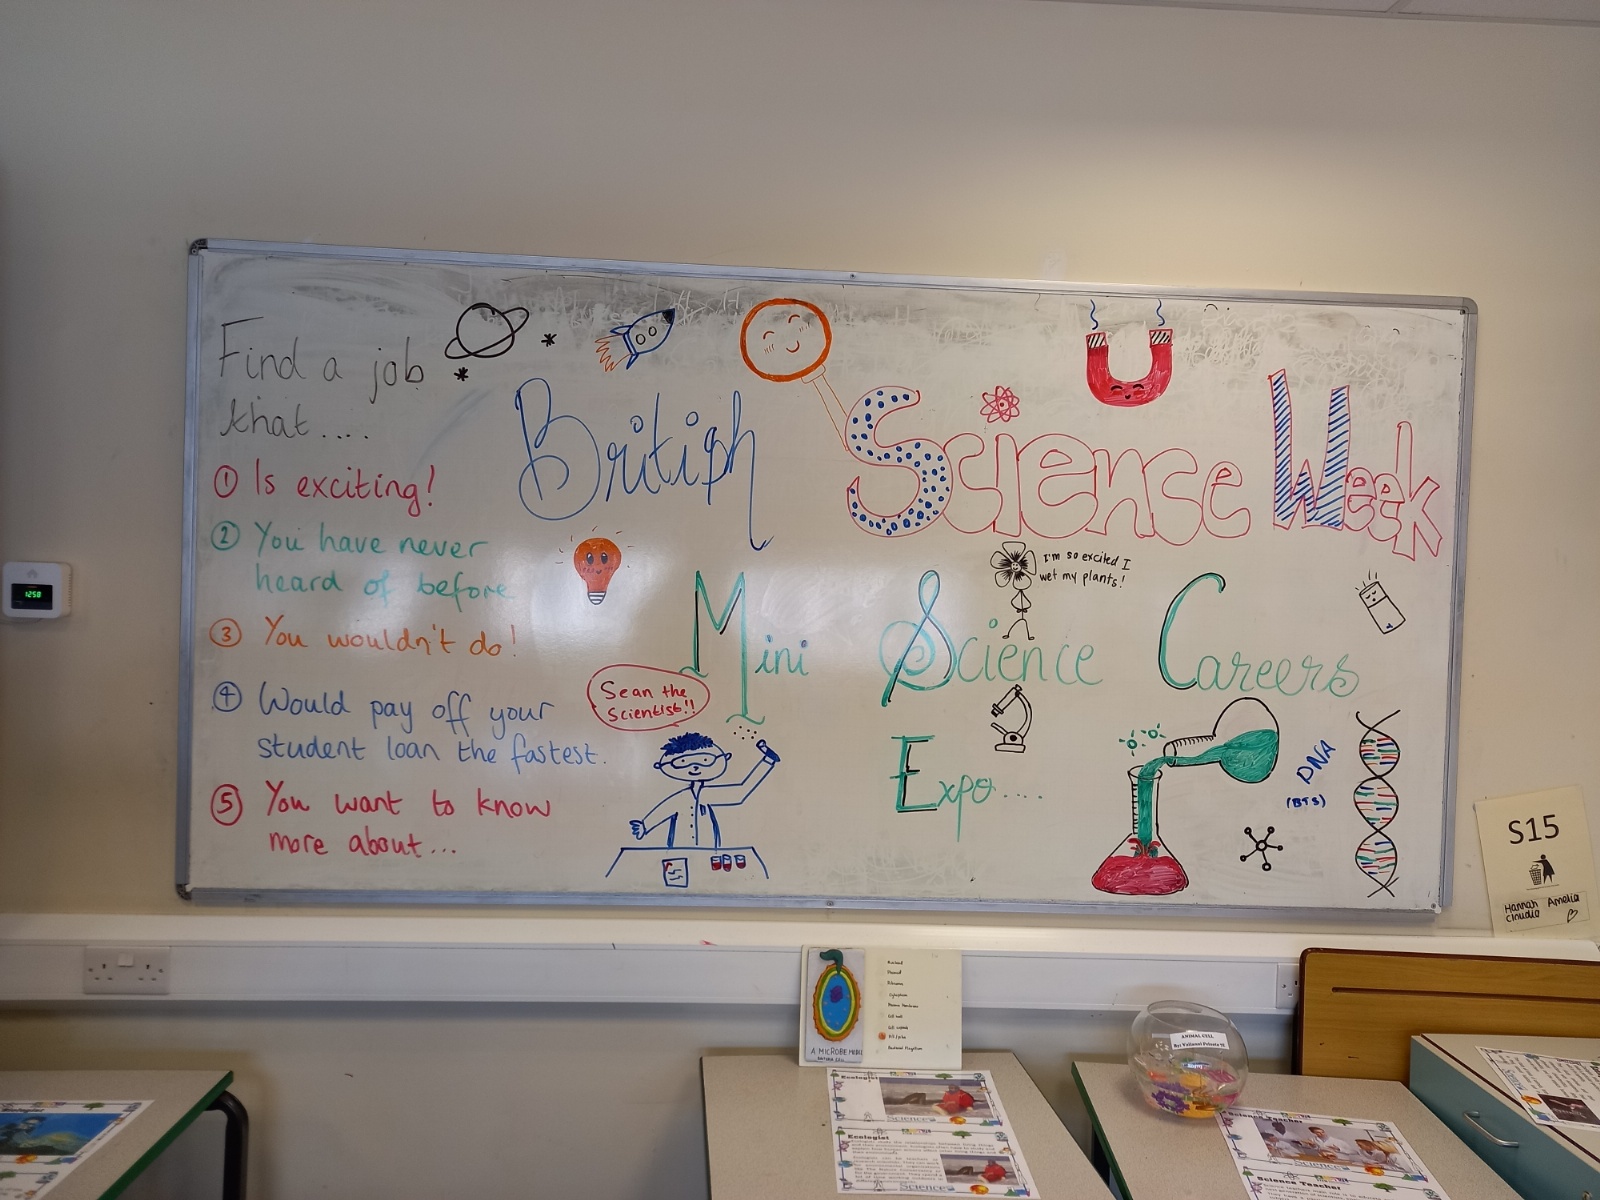 Find a job
that....
① Is exciting!
② You have never
heard of before
③ You wouldn't do!
④ Would pay off your
student loan the fastest.
⑤ You want to know
more about...
British Science Week
I'm so excited I
wet my plants!
Mini Science Careers
Expo....
Sean the
Scientist!!
DNA
(BTS)
1250
S15
Hannah Amelia
Claudia
A MICROBE
ANIMAL CELL
Ecologist
Science
Ecologist
Science
Science Teacher
Science
Science Teacher
Ecologist